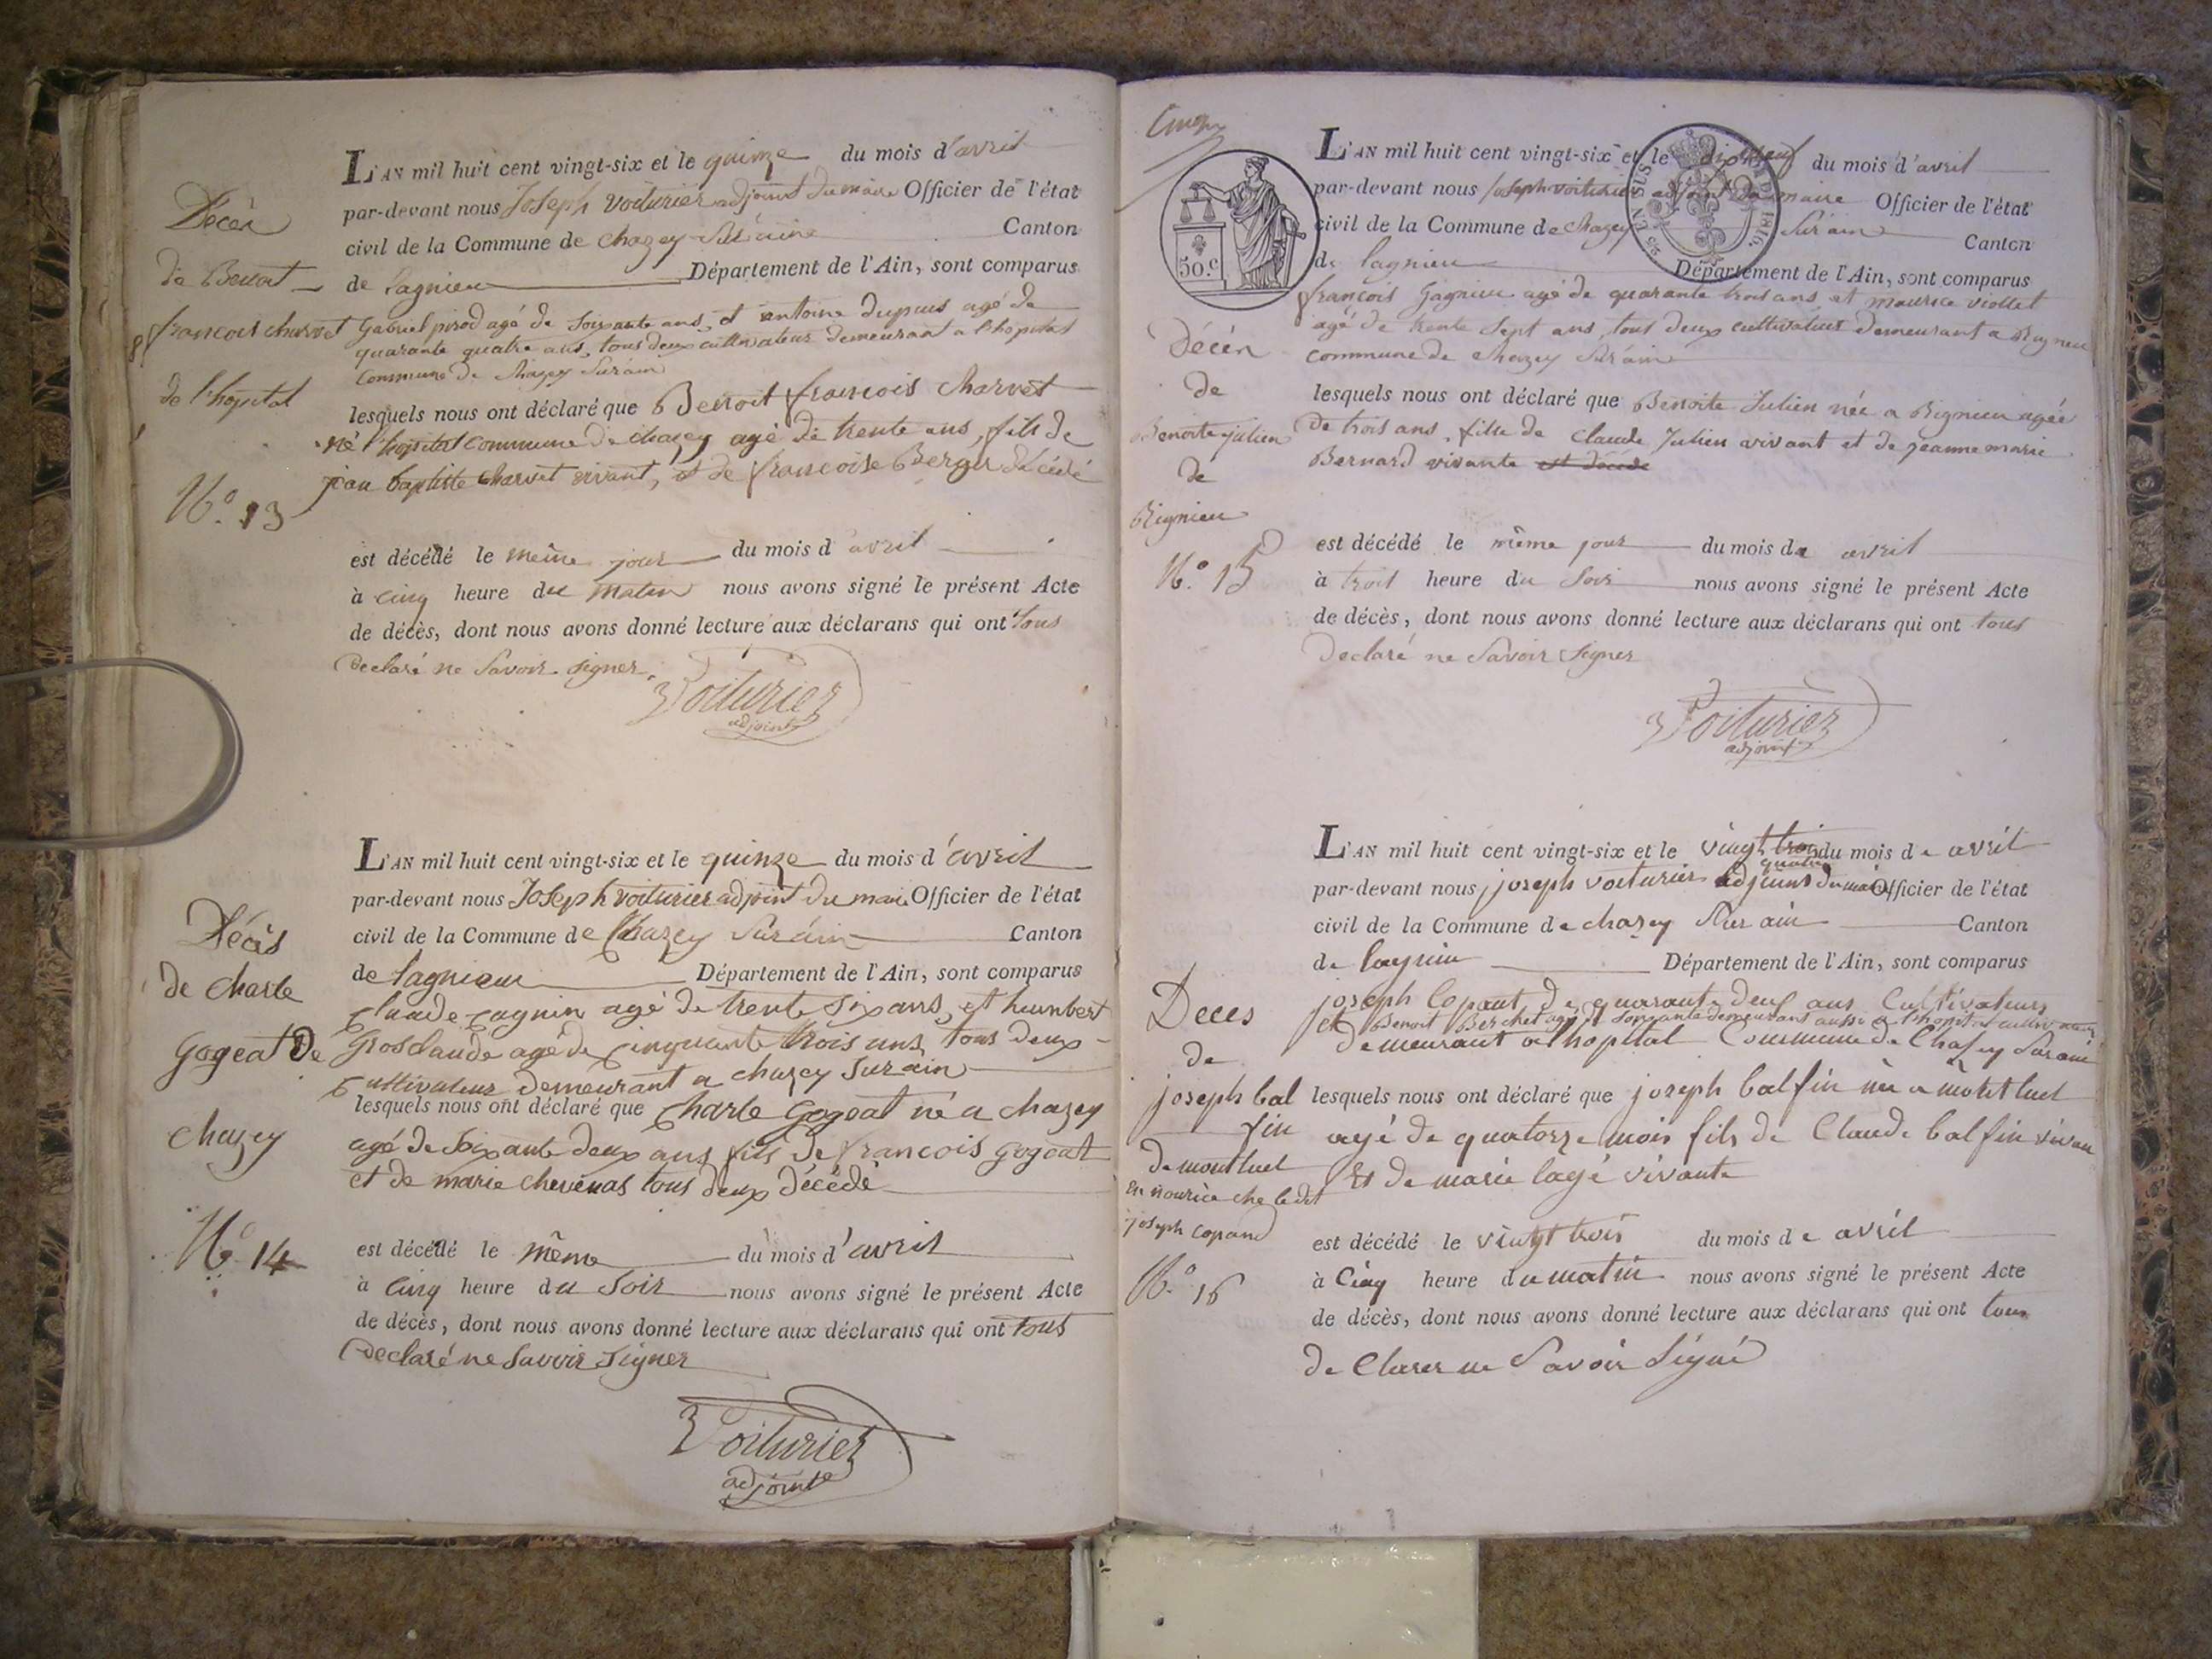 Décès
de Benoit
françois charvet
de l'hopital
N.° 13
L'AN mil huit cent vingt-six et le quinze du mois d'avril
par-devant nous Joseph voiturier adjoint du maire Officier de l'état
civil de la Commune de chazey Sur ain Canton
de Lagnieu Département de l'Ain, sont comparus
Gabriel pirod agé de soixante ans, et antoine dupuis agé de
quarante quatre ans, tous deux cultivateur demeurant a l'hopital
Commune de chazey Surain
lesquels nous ont déclaré que Benoit françois Charvet
né l'hopital commune de chazey agé de trente ans, fils de
jean baptiste charvet vivant, et de françoise Berger décédé
est décédé le même jour du mois d avril
à cinq heure du matin nous avons signé le présent Acte
de décès, dont nous avons donné lecture aux déclarans qui ont tous
declaré ne Savoir signer.
Voiturier
adjoint
Décès
de charle
Gogeat de
chazey
N.° 14
L'AN mil huit cent vingt-six et le quinze du mois d'avril
par-devant nous Joseph voiturier adjoint du maire Officier de l'état
civil de la Commune de Chazey Sur ain Canton
de lagnieu Département de l'Ain, sont comparus
claude cagnin agé de trente six ans, et humbert
Grosclaude agé de cinquante trois ans tous deux
cultivateur demeurant a chazey Surain
lesquels nous ont déclaré que charle Gogeat né a chazey
agé de soixante deux ans fils de francois gogeat
et de marie chevenas tous deux décédé
est décédé le même du mois d'avril
à cinq heure du Soir nous avons signé le présent Acte
de décès, dont nous avons donné lecture aux déclarans qui ont tous
declaré ne Savoir Signer
Voiturier
adjoint
50.c
Décès
de
Benoite julien
de
Rignieu
N.° 15
L'AN mil huit cent vingt-six et le dix neuf du mois d'avril
par-devant nous Joseph voiturier adjoint du maire Officier de l'état
civil de la Commune de chazey Sur ain Canton
de lagnieu Département de l'Ain, sont comparus
françois Gagnieu agé de quarante trois ans et maurice viollet
agé de trente sept ans, tous deux cultivateur demeurant a Rignieu
commune de chazey Surain
lesquels nous ont déclaré que Benoite Julien née a Rignieu agée
de trois ans, fille de claude Julien vivant et de jeanne marie
Bernard vivante est décédé
est décédé le même jour du mois de avril
à trois heure du Soir nous avons signé le présent Acte
de décès, dont nous avons donné lecture aux déclarans qui ont tous
declaré ne Savoir Signer
Voiturier
adjoint
Deces
de
joseph bal
fin
de montluel
en nourice che ledit
joseph copand
N.° 16
L'AN mil huit cent vingt-six et le vingt trois du mois de avril
quatre
par-devant nous joseph voiturier adjoint du maire Officier de l'état
civil de la Commune de chazey Sur ain Canton
de lagnieu Département de l'Ain, sont comparus
joseph Copant de quarante deux ans Cultivateurs
et Benoit Berchet agé de Soixante demeurant aussi a l'hopital cultivateur
demeurant a l'hopital Commune de Chazey Surain
lesquels nous ont déclaré que joseph balfin né a montluel
agé de quatorze mois fils de Claude balfin vivan
et de marie lagé vivante
est décédé le vingt trois du mois de avril
à Cinq heure du matin nous avons signé le présent Acte
de décès, dont nous avons donné lecture aux déclarans qui ont tous
de Clarer ne Savoir Signé